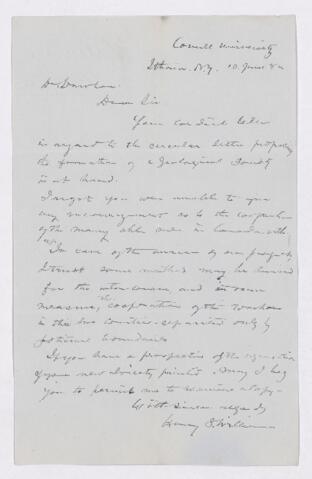 Cornell University
Ithaca, N.Y. 10 June 82
Dr. Dawson
Dear Sir
Your cordial letter
in regard to the circular letter proposing
the formation of a Geological Society
is at hand.
I regret you were unable to give
any encouragement as to the cooperation
of the many able men in Canada with
us. In case of the success of our project
I trust some method may be devised
for the intercourse, and in some
measure, the cooperation of the workers
in the two countries separated only by
political boundaries.
If you have a prospectus of the organization
of your new Society printed may I beg
you to permit me to examine a copy.
With sincere regards
Henry S. Williams